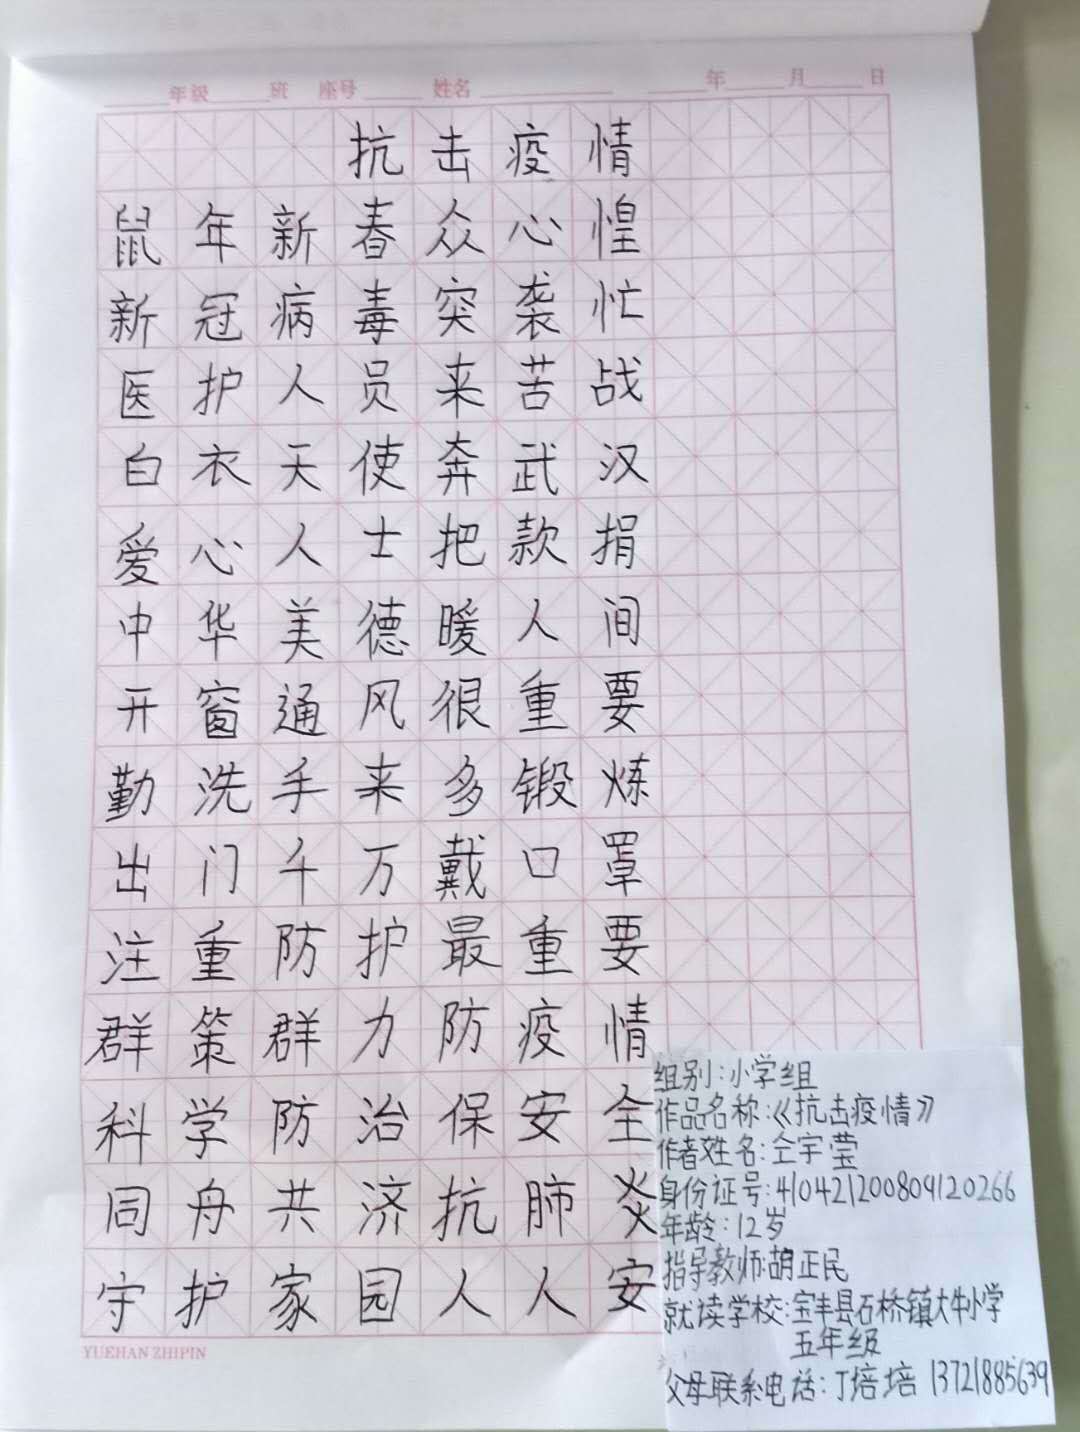 年级 班 座号 姓名 年 月 日
抗击疫情
鼠年新春众心惶
新冠病毒突袭忙
医护人员来苦战
白衣天使奔武汉
爱心人士把款捐
中华美德暖人间
开窗通风很重要
勤洗手来多锻炼
出门千万戴口罩
注重防护最重要
群策群力防疫情
科学防治保安全
同舟共济抗肺炎
守护家园人人安
YUEHAN ZHIPIN
组别:小学组
作品名称:《抗击疫情》
作者姓名:仝宇莹
身份证号:410421200809120266
年龄:12岁
指导教师:胡正民
就读学校:宝丰县石桥镇大牛小学
五年级
父母联系电话:丁培培 13721885639